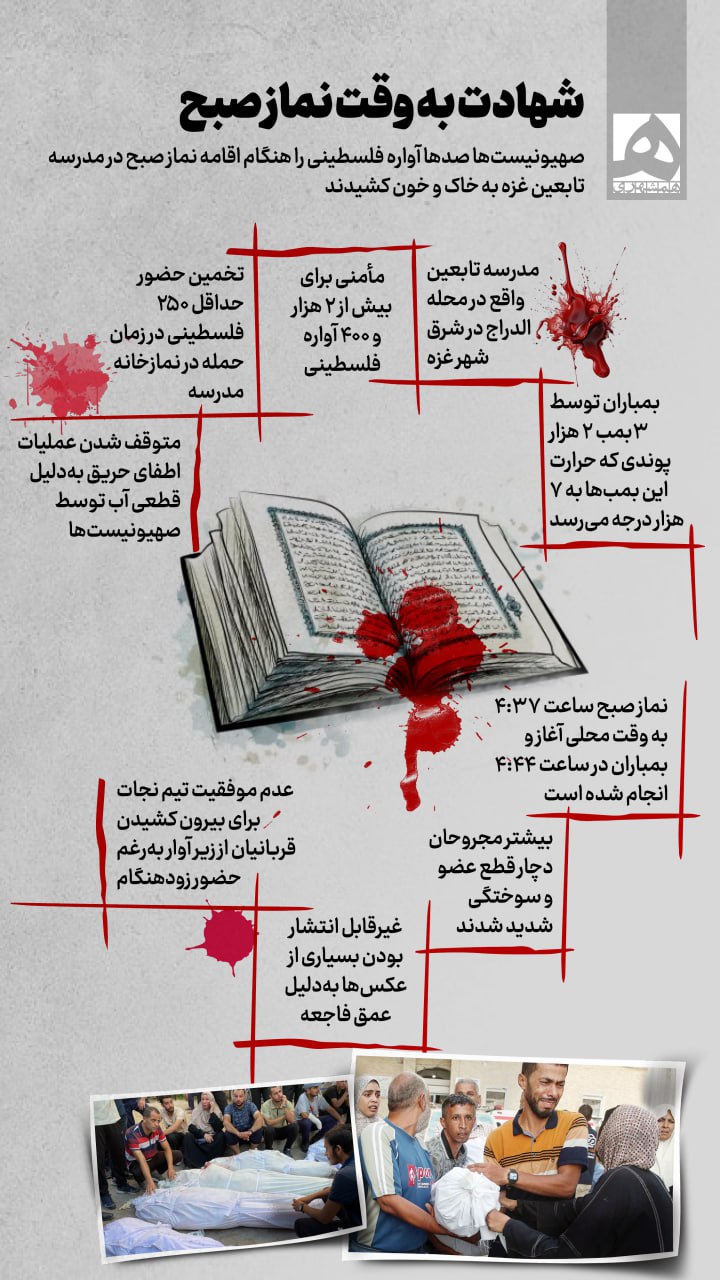 شهادت به وقت نماز صبح
همشهری
صهیونیست‌ها صدها آواره فلسطینی را هنگام اقامه نماز صبح در مدرسه
تابعین غزه به خاک و خون کشیدند
مدرسه تابعین
واقع در محله
الدراج در شرق
شهر غزه
مأمنی برای
بیش از ۲ هزار
و ۴۰۰ آواره
فلسطینی
تخمین حضور
حداقل ۲۵۰
فلسطینی در زمان
حمله در نمازخانه
مدرسه
بمباران توسط
۳ بمب ۲ هزار
پوندی که حرارت
این بمب‌ها به ۷
هزار درجه می‌رسد
متوقف شدن عملیات
اطفای حریق به‌دلیل
قطعی آب توسط
صهیونیست‌ها
نماز صبح ساعت ۴:۳۷
به وقت محلی آغاز و
بمباران در ساعت ۴:۴۴
انجام شده است
بیشتر مجروحان
دچار قطع عضو
و سوختگی
شدید شدند
غیرقابل انتشار
بودن بسیاری از
عکس‌ها به‌دلیل
عمق فاجعه
عدم موفقیت تیم نجات
برای بیرون کشیدن
قربانیان از زیر آوار به‌رغم
حضور زودهنگام